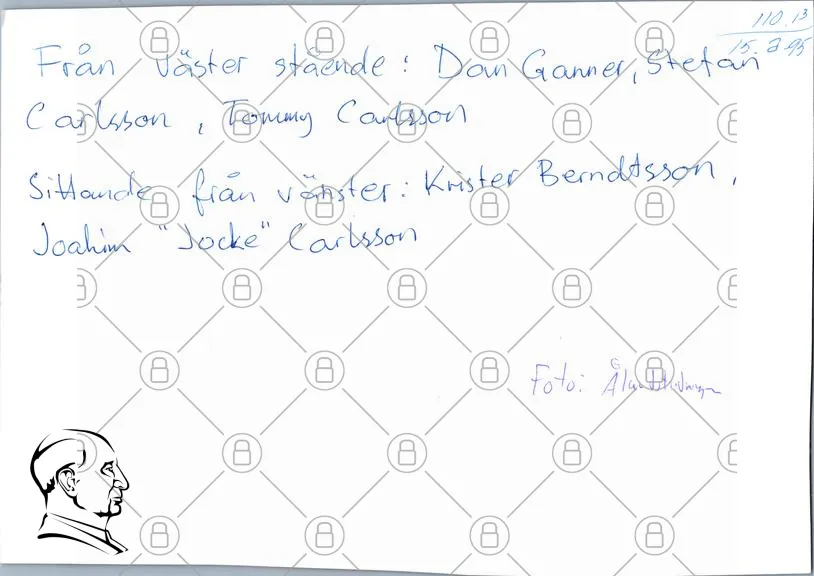 110.13
15.2 95
Från väster stående: Dan Ganner, Stefan
Carlsson, Tommy Carlsson
Sittande från vänster: Krister Berndtsson,
Joahim "Jocke" Carlsson
Foto: Ålandstidningen